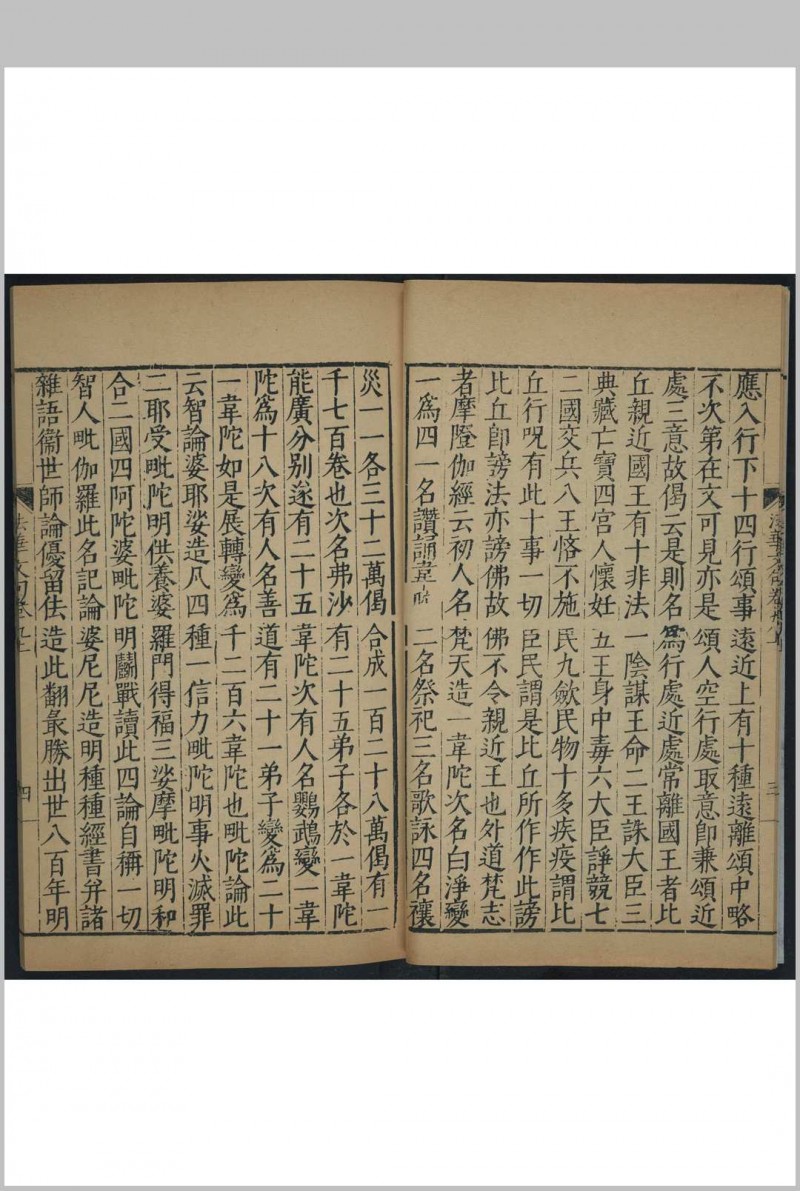 應入行下十四行頌事遠近上有十種遠離頌中略
不次第在文可見亦是頌人空行處取意即兼頌近
處三意故偈云是則名爲行處近處常離國王者比
丘親近國王有十非法一陰謀王命二王誅大臣三
典藏亡寶四宮人懷妊五王身中毒六大臣諍競七
二國交兵八王悋不施民九斂民物十多疾疫謂比
丘行呪有此十事一切臣民謂是比丘所作作此謗
比丘即謗法亦謗佛故佛不令親近王也外道梵志
者摩隥伽經云初人名梵天造一韋陀次名白淨變
一爲四一名讚誦韋陀二名祭祀三名歌詠四名禳
災一一各三十二萬偈合成一百二十八萬偈有一
千七百卷也次名弗沙有二十五弟子各於一韋陀
能廣分別遂有二十五韋陀次有人名鸚鵡變一韋
陀爲十八次有人名善道有二十一弟子變爲二十
一韋陀如是展轉變爲千二百六韋陀也毗陀論此
云智論婆耶娑造凡四種一信力毗陀明事火滅罪
二耶受毗陀明供養婆羅門得福三娑摩毗陀明和
合二國四阿陀婆毗陀明鬬戰讀此四論自稱一切
智人毗伽羅此名記論婆尼尼造明種種經書幷諸
雜語衞世師論優留佉造此翻最勝出世八百年明
四